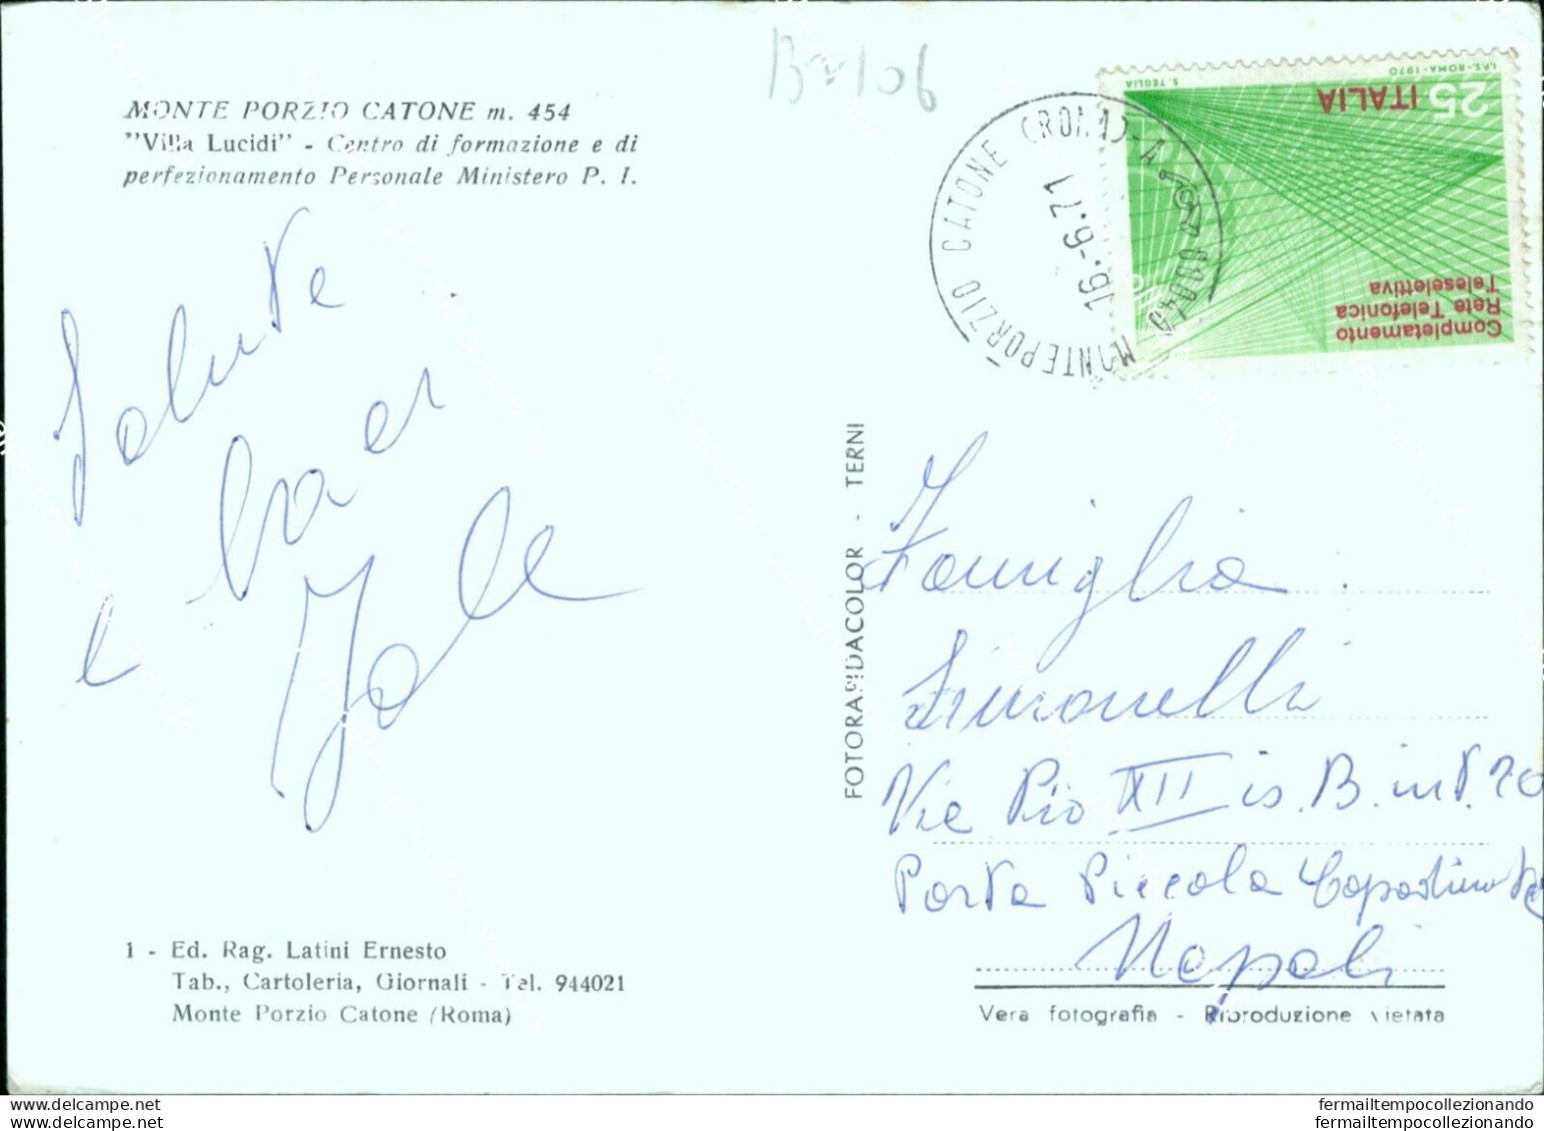 B 106
MONTE PORZIO CATONE m. 454
"Villa Lucidi" - Centro di formazione e di
perfezionamento Personale Ministero P. I.
Salute
e baci
Jole
1 - Ed. Rag. Latini Ernesto
Tab., Cartoleria, Giornali - Tel. 944021
Monte Porzio Catone (Roma)
FOTORAPIDACOLOR - TERNI
MONTEPORZIO CATONE (ROMA) - A
00040
16.6.71
I.P.S.-ROMA-1970
S. TEGLIA
25
ITALIA
Completamento
Rete Telefonica
Teleselettiva
Famiglia
Simonelli
Via Pio XII is. B. int. 20
Porta Piccola
Napoli
Vera fotografia - Riproduzione vietata
fermailtempocollezionando
fermailtempocollezionando
fermailtempocollezionando
fermailtempocollezionando